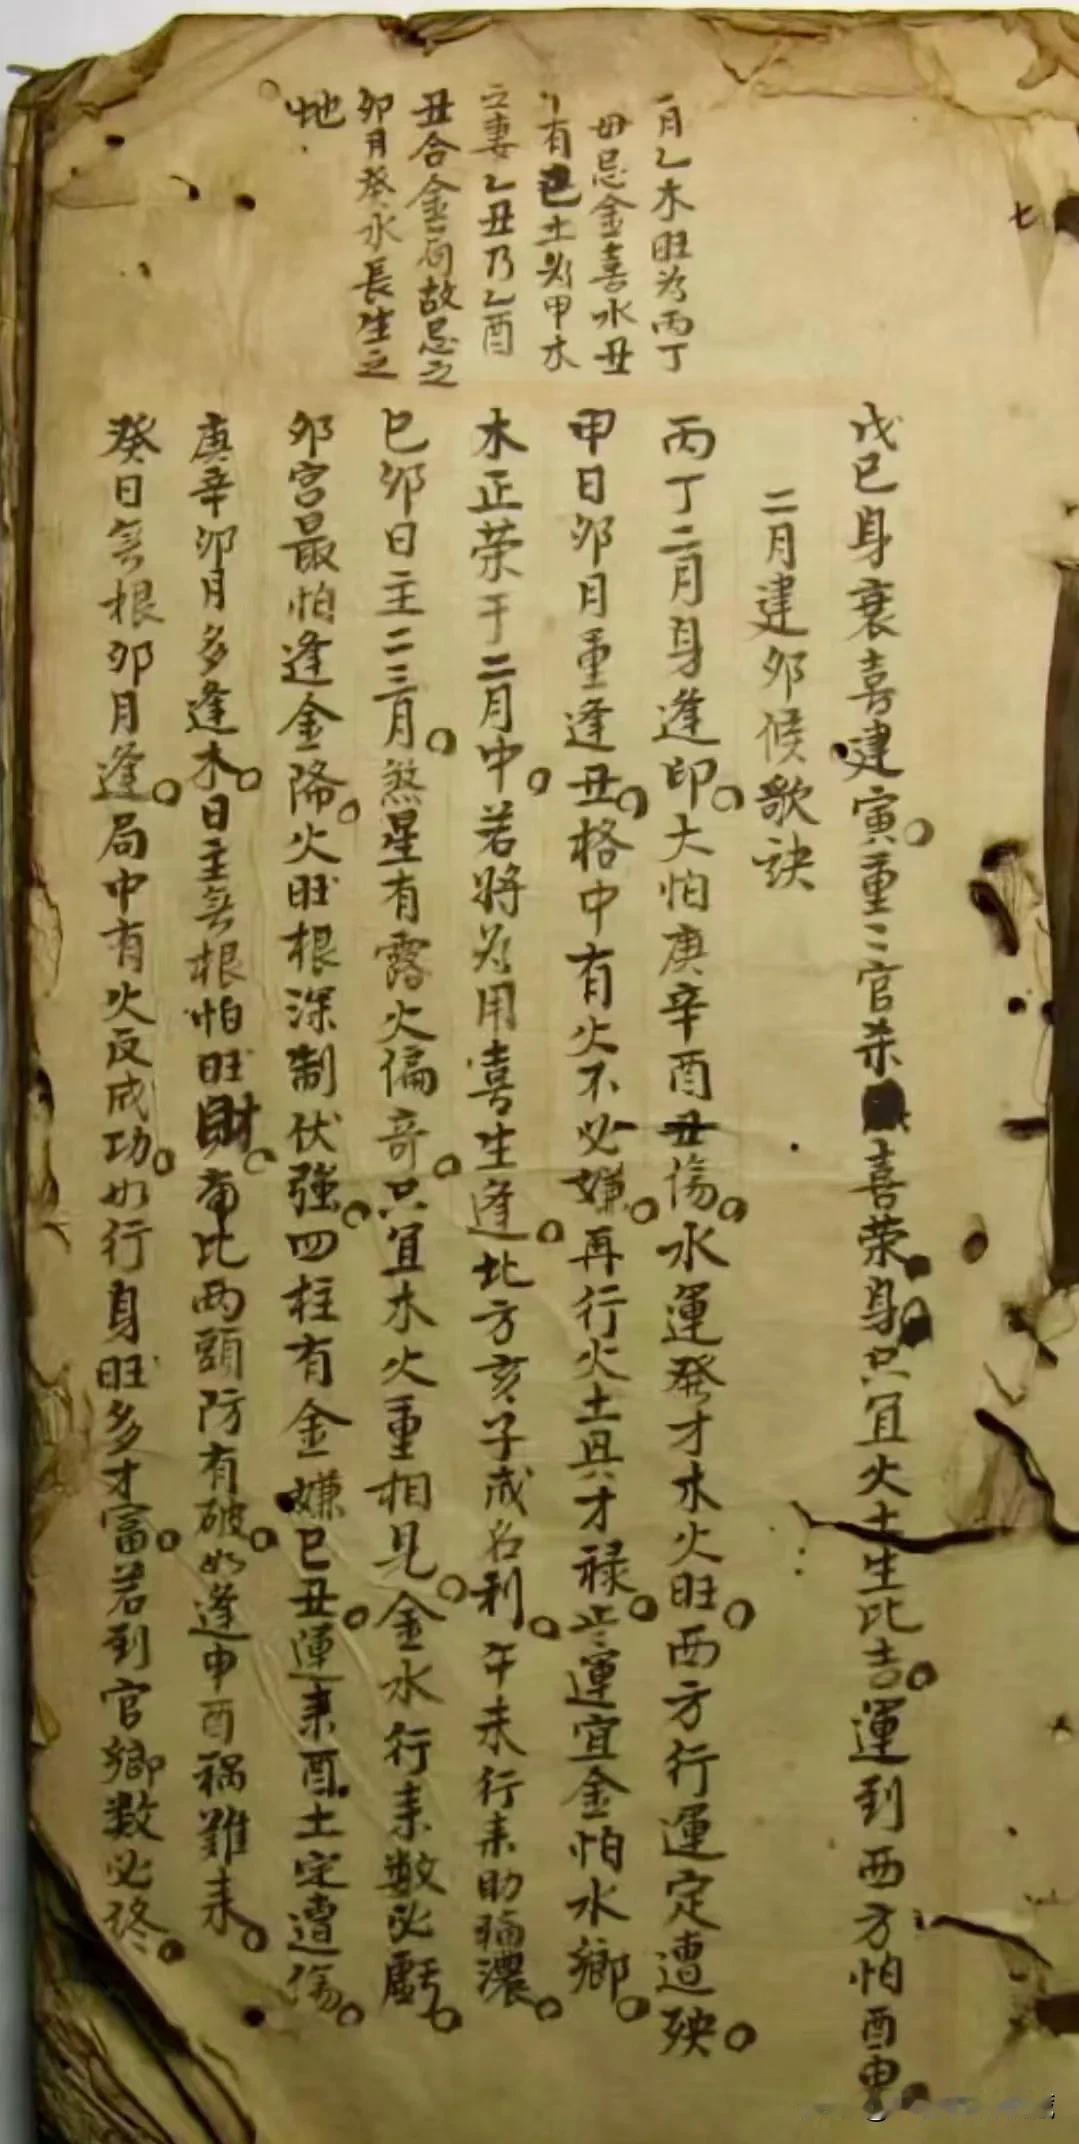 二月乙木旺为丙丁
母忌金喜水丑
中有己土为甲木
之妻乙丑乃乙酉
丑合金局故忌之
卯月癸水長生之
地
七
戊己身衰喜建寅。重々官杀喜荣身。只宜火土生比吉。運到西方怕酉申。
二月建卯候歌訣
丙丁二月身逢印。大怕庚辛酉丑傷。水運發才木火旺。西方行運定遭殃。
甲日卯月重逢丑。格中有火不必嫌。再行火土兴才禄。逆運宜金怕水鄉。
木正荣于二月中。若将为用喜生逢。北方亥子成名利。午未行来助福濃。
己卯日主二三月。煞星有露火偏奇。只宜木火重相見。金水行来数必虧。
卯宫最怕逢金降。火旺根深制伏强。四柱有金嫌巳丑。運来酉土定遭傷。
庚辛卯月多逢木。日主無根怕旺財。南比两頭防有破。如逢申酉祸難来。
癸日無根卯月逢。局中有火反成功。如行身旺多才富。若到官鄉数必终。